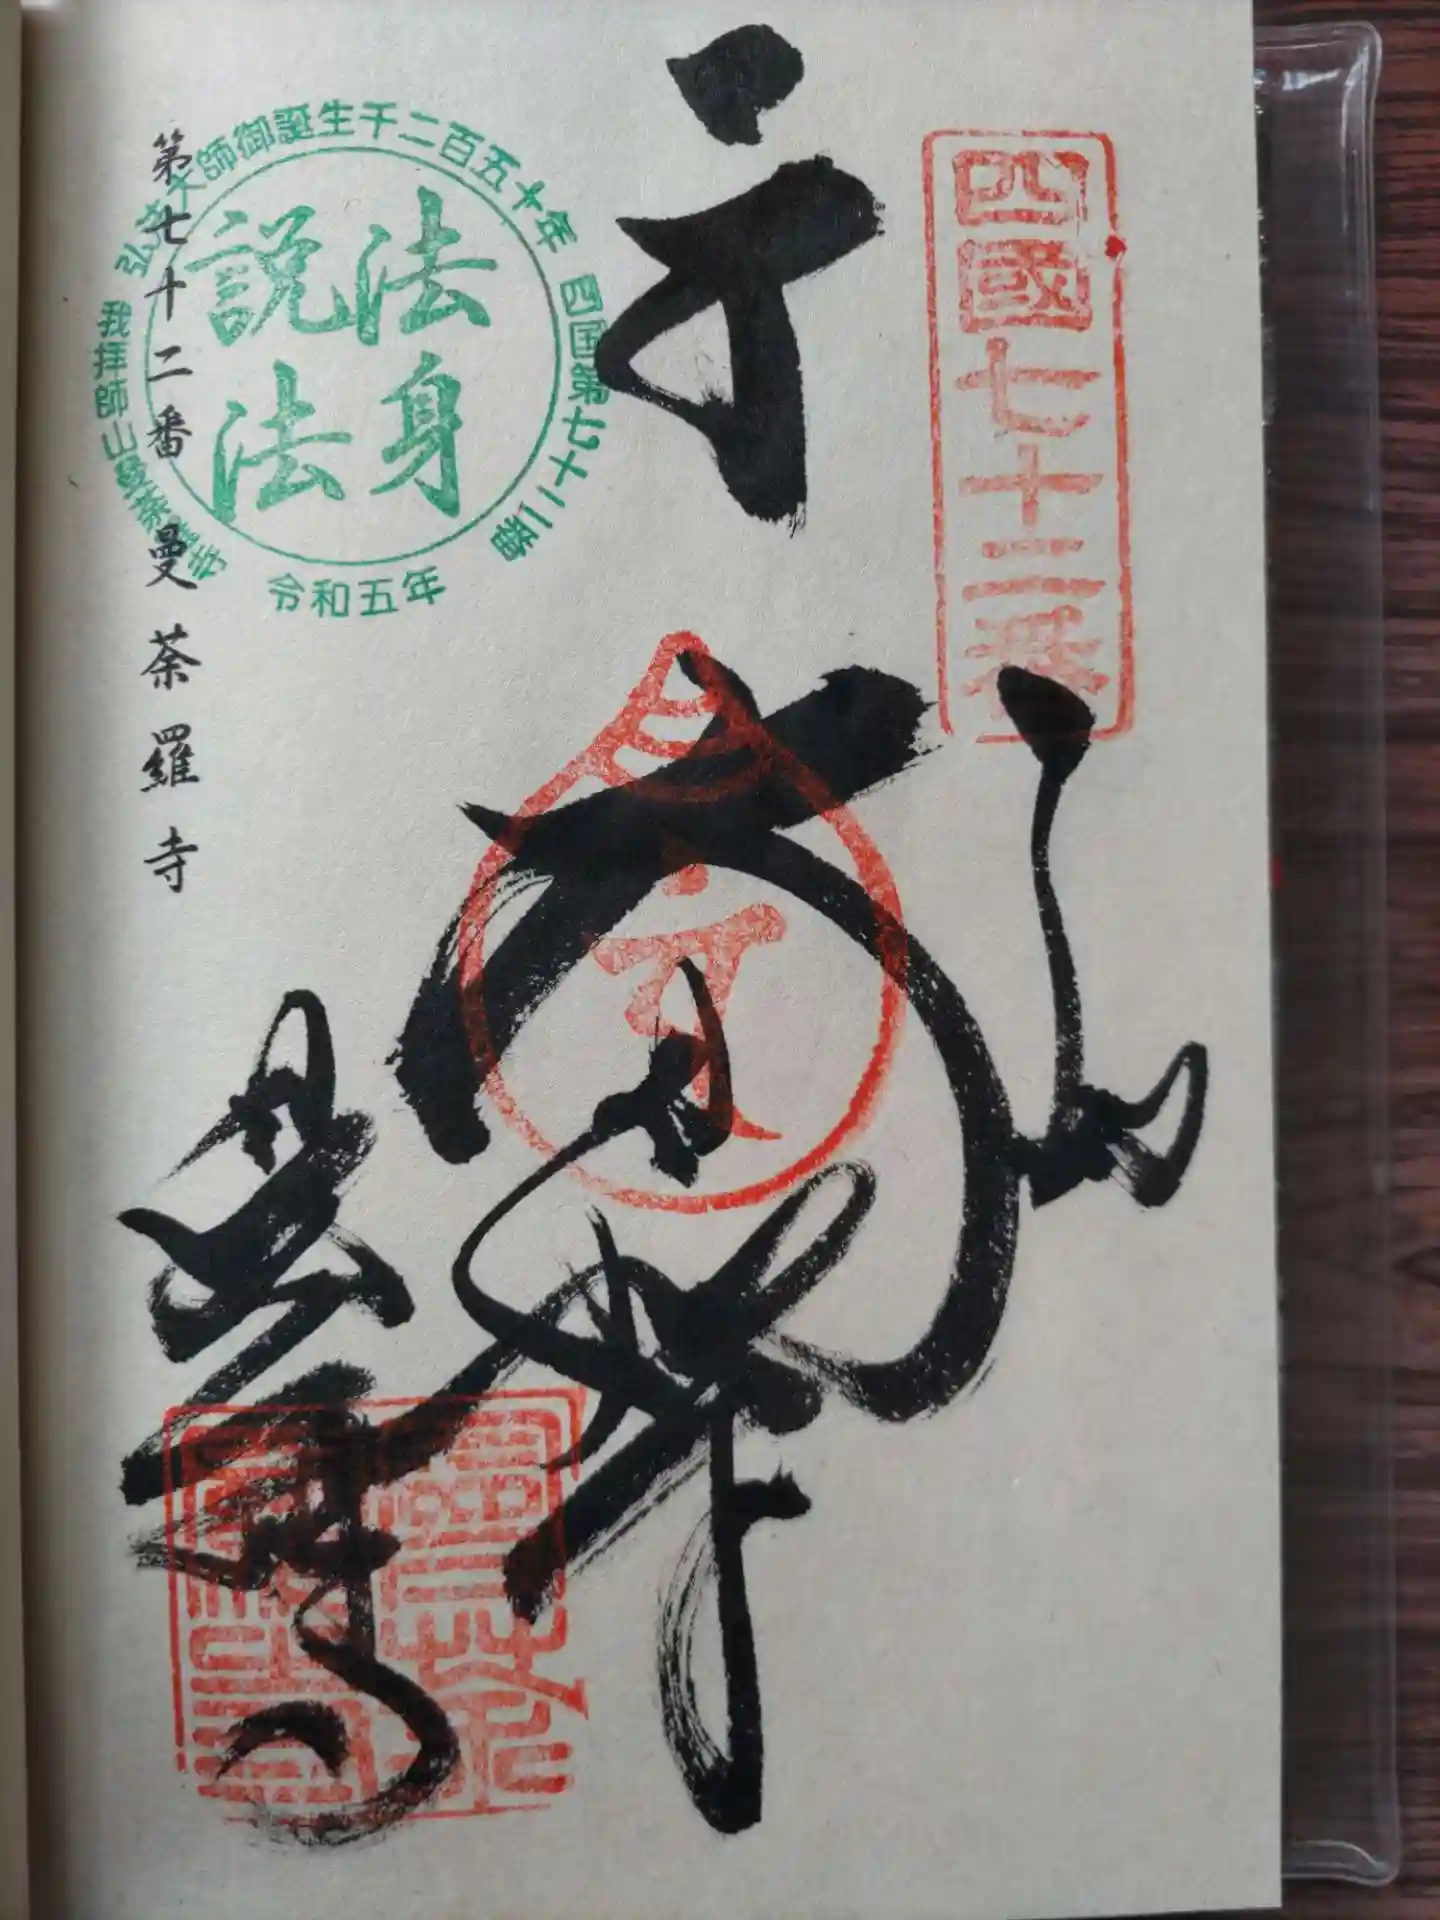 四國七十二番
奉納
大日如来
曼荼羅寺
弘法大師御誕生千二百五十年
四国第七十二番
法身
説法
令和五年
我拝師山曼荼羅寺
第七十二番 曼荼羅寺